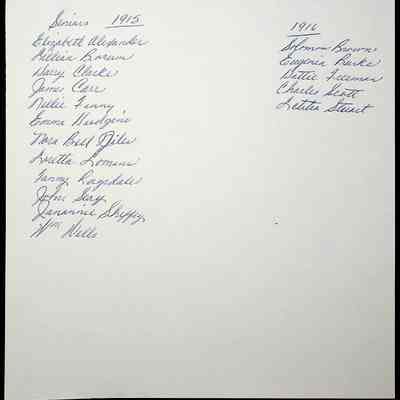 Seniors 1915
Elizabeth Alexander
Lillian Borum
Daisy Clarke
James Carr
Nellie Fanny
Emma Hudgins
Nora Bell Giles
Loretta Lomans
Fanny Ragsdale
John Slay
William Wells
1916
Solomon Brown
Eugenia Burke
Dottie Freeman
Charles Scott
Letitia Stuart